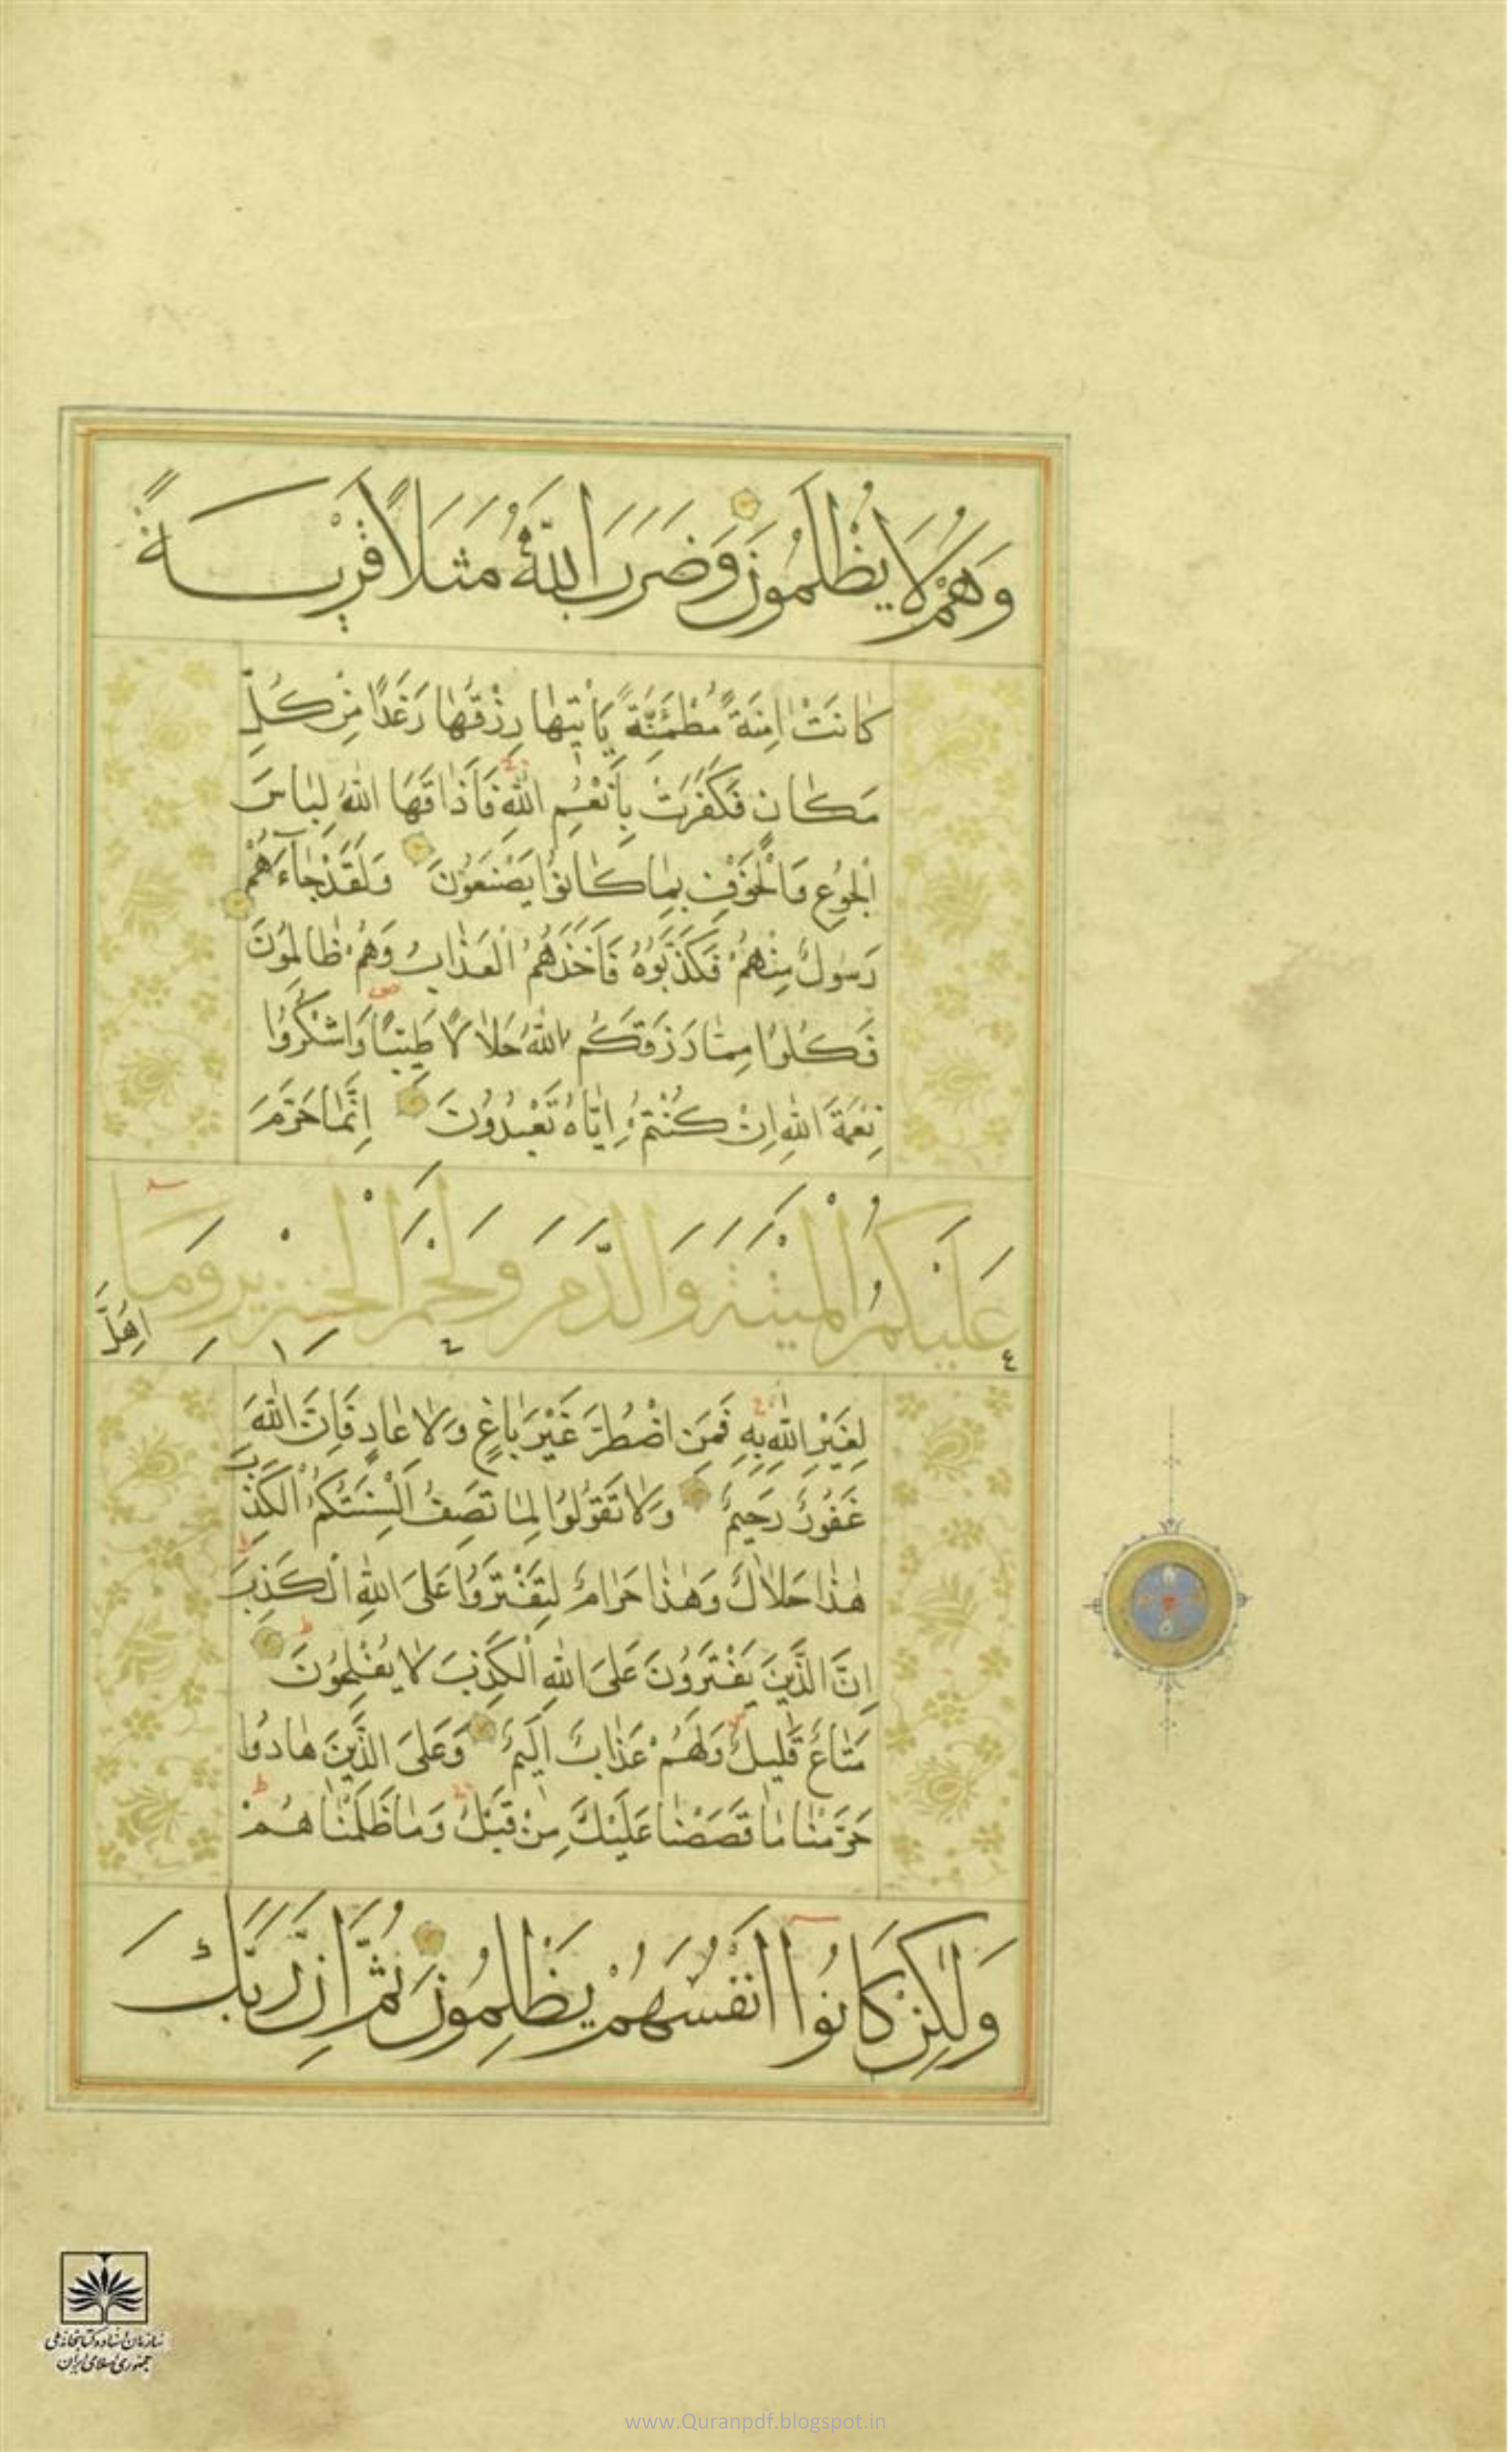 وَهُمْ لَا يُظْلَمُونَ وَضَرَبَ اللَّهُ مَثَلًا قَرْيَةً
كَانَتْ اٰمِنَةً مُطْمَئِنَّةً يَأْتِيهَا رِزْقُهَا رَغَدًا مِنْ كُلِّ
مَكَانٍ فَكَفَرَتْ بِأَنْعُمِ اللهِ فَأَذَاقَهَا اللهُ لِبَاسَ
الْجُوعِ وَالْخَوْفِ بِمَا كَانُوا يَصْنَعُونَ وَلَقَدْ جَاءَهُمْ
رَسُولٌ مِنْهُمْ فَكَذَّبُوهُ فَأَخَذَهُمُ الْعَذَابُ وَهُمْ ظَالِمُونَ
فَكُلُوا مِمَّا رَزَقَكُمُ اللهُ حَلَالًا طَيِّبًا وَاشْكُرُوا
نِعْمَةَ اللهِ إِنْ كُنْتُمْ إِيَّاهُ تَعْبُدُونَ إِنَّمَا حَرَّمَ
عَلَيْكُمُ الْمَيْتَةَ وَالدَّمَ وَلَحْمَ الْخِنْزِيرِ وَمَا
اُهِلَّ
لِغَيْرِ اللهِ بِهِ فَمَنِ اضْطُرَّ غَيْرَ بَاغٍ وَلَا عَادٍ فَإِنَّ اللهَ
غَفُورٌ رَحِيمٌ وَلَا تَقُولُوا لِمَا تَصِفُ أَلْسِنَتُكُمُ الْكَذِبَ
هٰذَا حَلَالٌ وَهٰذَا حَرَامٌ لِتَفْتَرُوا عَلَى اللهِ الْكَذِبَ
إِنَّ الَّذِينَ يَفْتَرُونَ عَلَى اللهِ الْكَذِبَ لَا يُفْلِحُونَ
مَتَاعٌ قَلِيلٌ وَلَهُمْ عَذَابٌ أَلِيمٌ وَعَلَى الَّذِينَ هَادُوا
حَرَّمْنَا مَا قَصَصْنَا عَلَيْكَ مِنْ قَبْلُ وَمَا ظَلَمْنَاهُمْ
وَلٰكِنْ كَانُوا أَنْفُسَهُمْ يَظْلِمُونَ ثُمَّ إِنَّ رَبَّكَ
سازمان اسناد و کتابخانه ملی
جمهوری اسلامی ایران
www.Quranpdf.blogspot.in